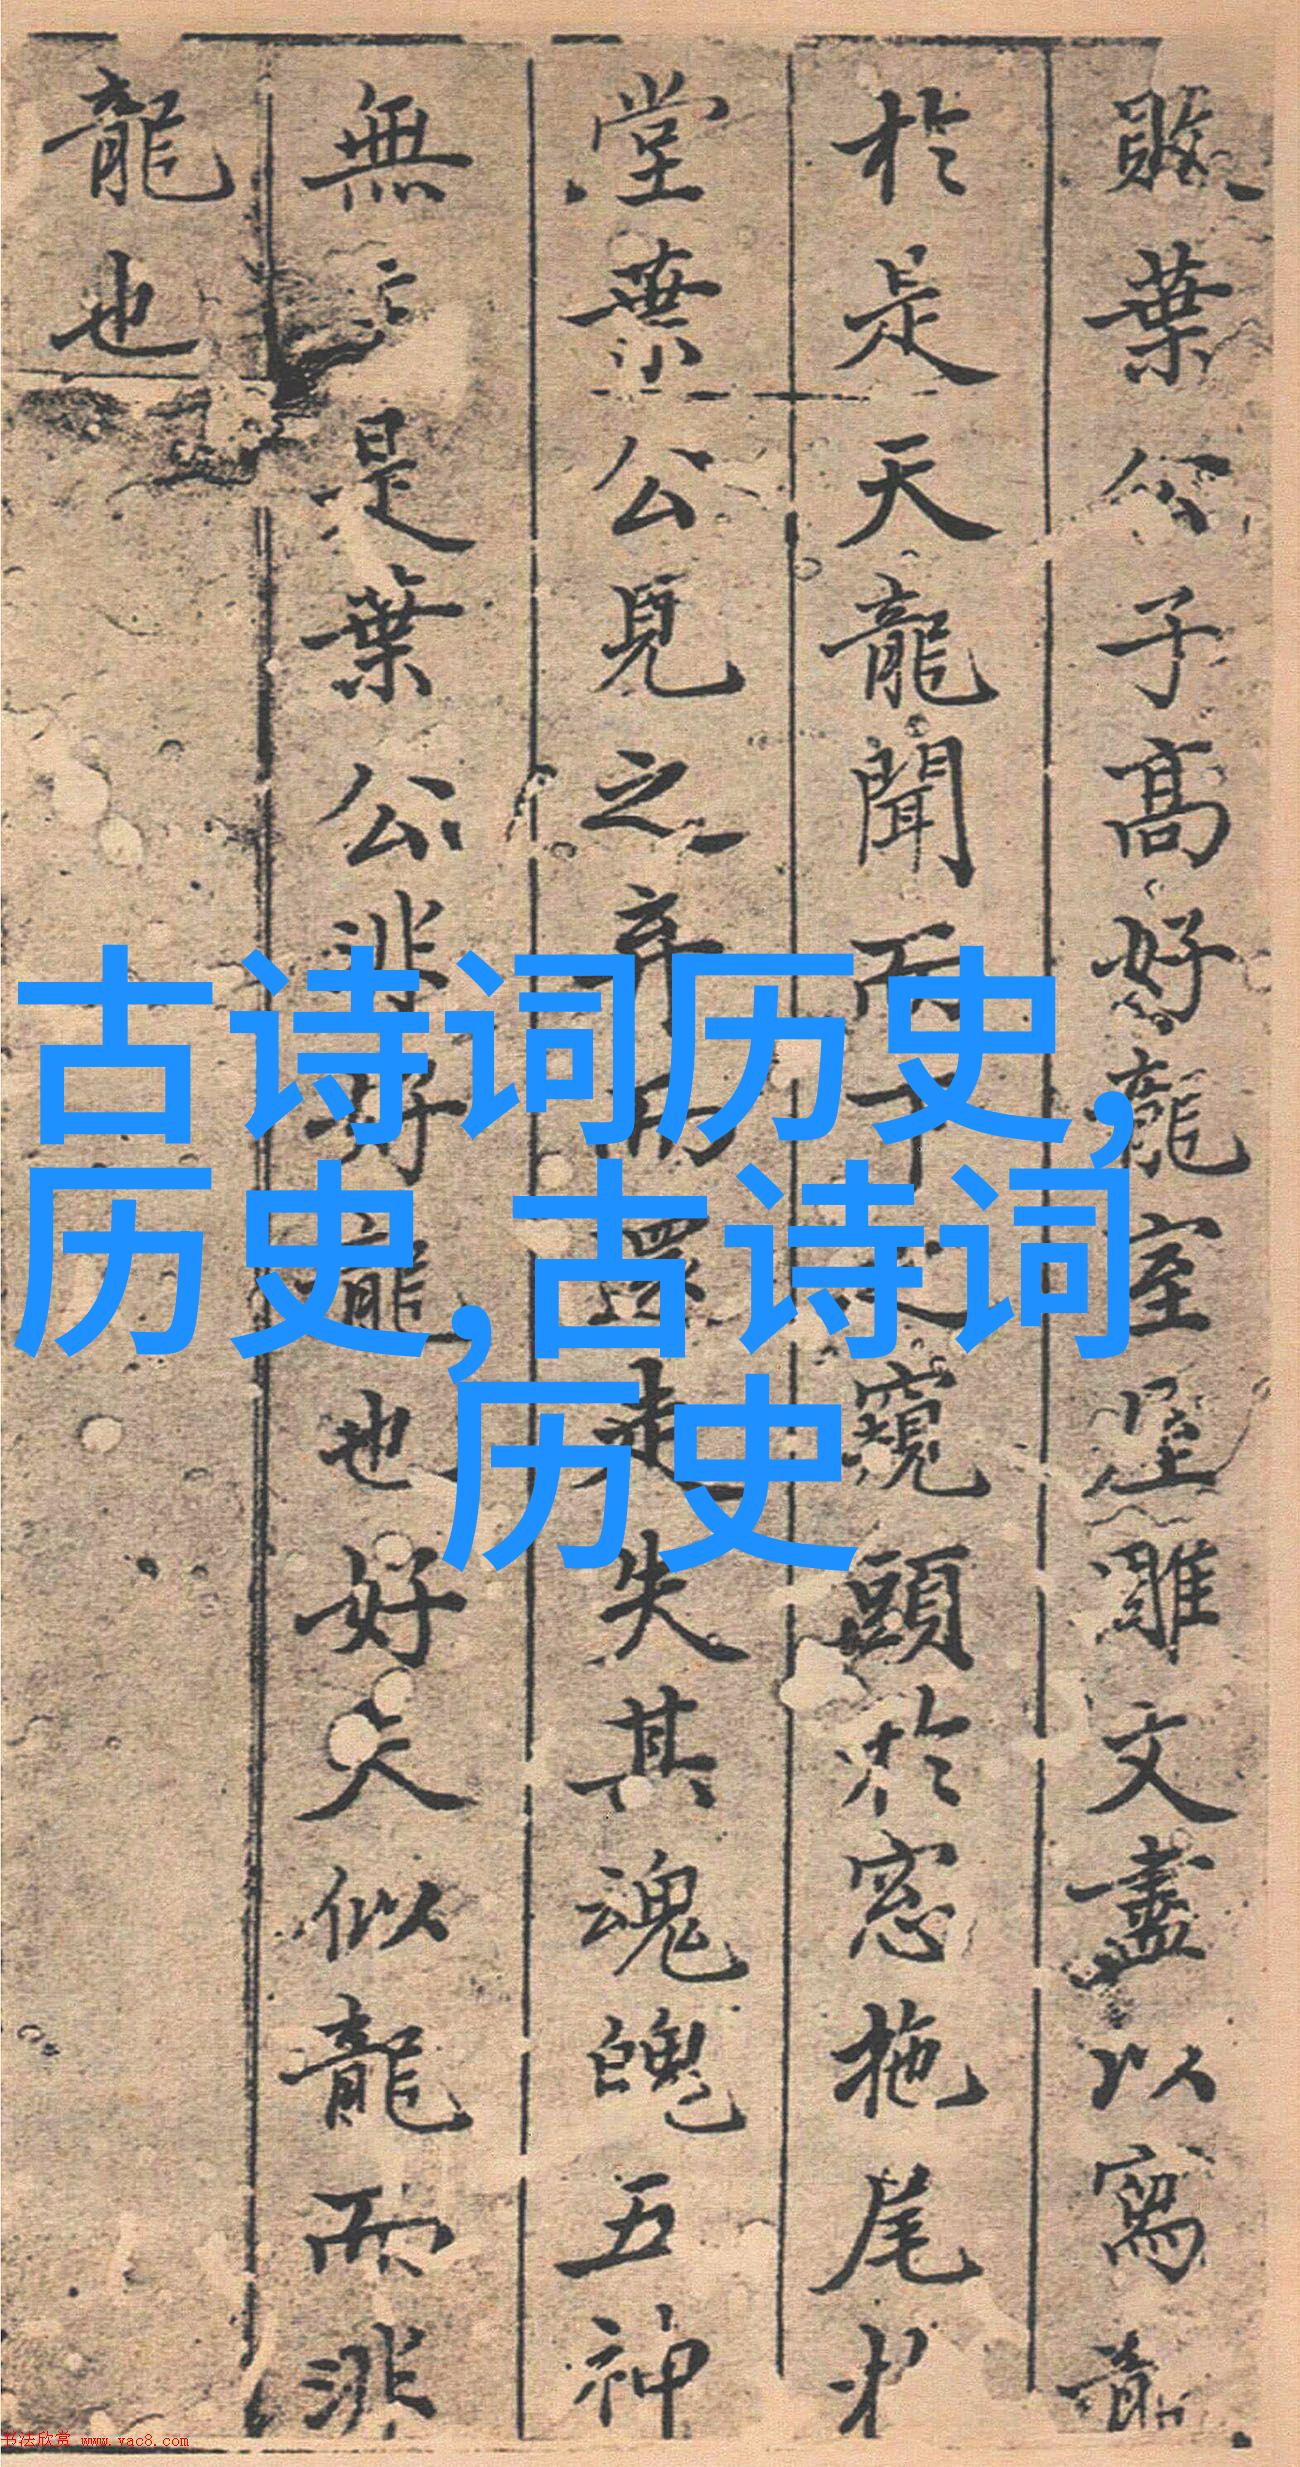 敗葉公子高好龍室屋雕文盡以寫龍
於是天龍聞而下之窺頭於窓拖尾於
堂葉公見之弃而還走失其魂魄五神
無主是葉公非好龍也好夫似龍而非
龍也
古诗词历史,
历史,古诗词
历史
书法欣赏 www.yac8.com